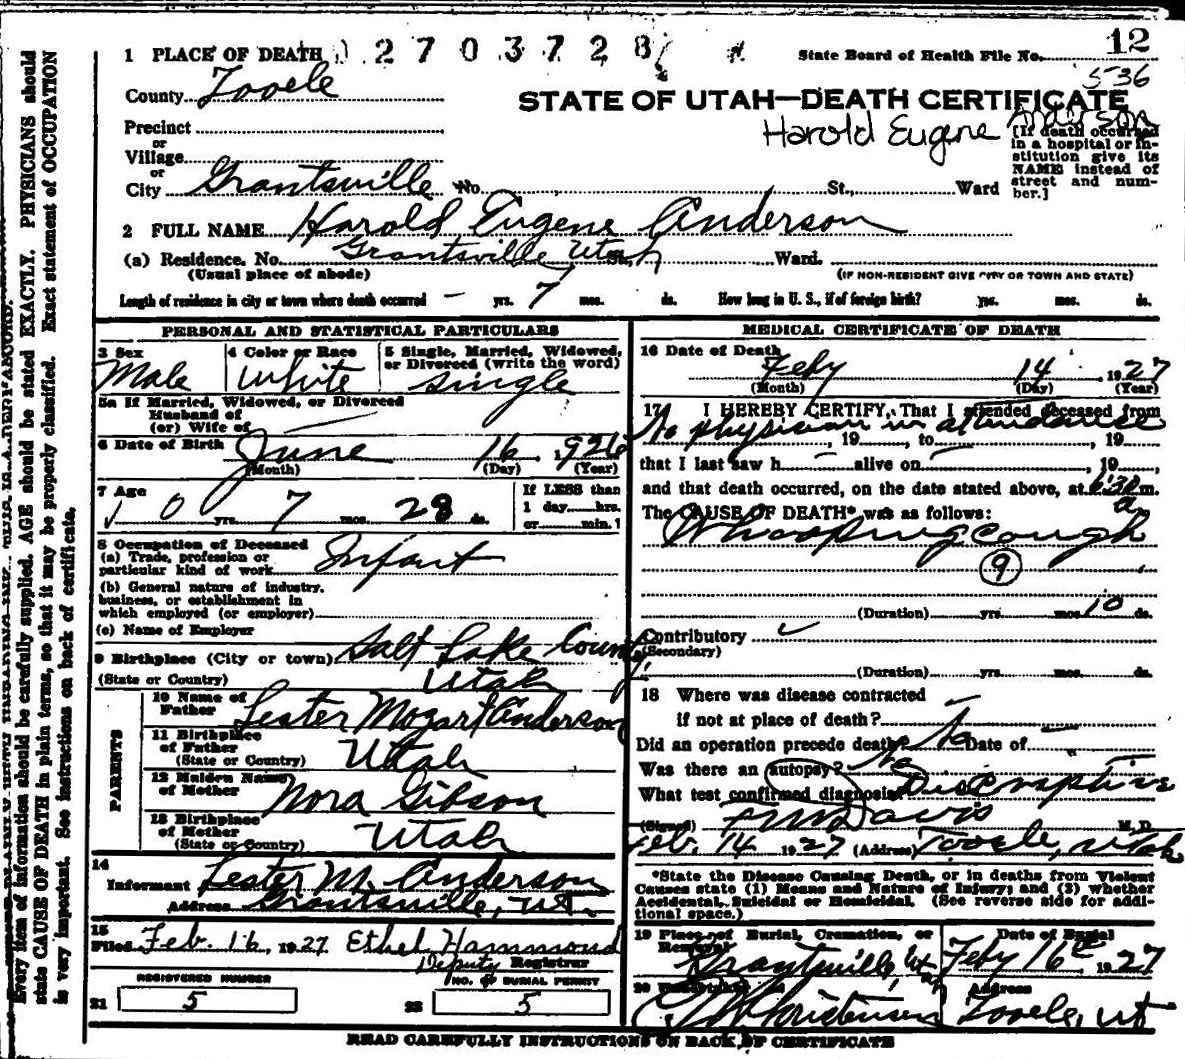 1 PLACE OF DEATH 0 2 7 0 3 7 2 8 State Board of Health File No. 12
536
County Tooele
STATE OF UTAH—DEATH CERTIFICATE
Harold Eugene Anderson
Precinct
or
Village
or
City Grantsville No. St., Ward
[If death occurred in a hospital or institution give its NAME instead of street and number.]
2 FULL NAME Harold Eugene Anderson
(a) Residence. No. Grantsville Utah St., Ward.
(Usual place of abode) (IF NON-RESIDENT GIVE CITY OR TOWN AND STATE)
Length of residence in city or town where death occurred — yrs. 7 mos. ds. How long in U. S., if of foreign birth? yrs. mos. ds.
PERSONAL AND STATISTICAL PARTICULARS
3 Sex Male
4 Color or Race White
5 Single, Married, Widowed, or Divorced (write the word) Single
5a If Married, Widowed, or Divorced
Husband of
(or) Wife of
6 Date of Birth June 16, 1926
(Month) (Day) (Year)
7 Age 0 yrs. 7 mos. 28 ds.
If LESS than
1 day hrs.
or min.?
8 Occupation of Deceased
(a) Trade, profession or
particular kind of work Infant
(b) General nature of industry,
business, or establishment in
which employed (or employer)
(c) Name of Employer
9 Birthplace (City or town) Salt Lake County
(State or Country) Utah
PARENTS
10 Name of Father Lester Mozart Anderson
11 Birthplace of Father
(State or Country) Utah
12 Maiden Name of Mother Nora Gibson
13 Birthplace of Mother
(State or Country) Utah
14
Informant Lester M. Anderson
Address Grantsville, Ut.
15
Filed Feb. 16, 1927 Ethel Hammond
Deputy Registrar
REGISTERED NUMBER NO. OF BURIAL PERMIT
21 5 22 5
MEDICAL CERTIFICATE OF DEATH
16 Date of Death Feby 14 1927
(Month) (Day) (Year)
17 I HEREBY CERTIFY, That I attended deceased from
No physician in attendance , 19 , to , 19 ,
that I last saw h alive on , 19 ,
and that death occurred, on the date stated above, at 6:30 a m.
The CAUSE OF DEATH* was as follows:
Whooping cough
9
(Duration) yrs. mos. 10 ds.
Contributory
(Secondary)
(Duration) yrs. mos. ds.
18 Where was disease contracted
if not at place of death?
Did an operation precede death? No Date of
Was there an autopsy? No
What test confirmed diagnosis? Descriptive
(Signed) F M Davis M. D.
Feb. 14 1927 (Address) Tooele, Utah
*State the Disease Causing Death, or in deaths from Violent
Causes state (1) Means and Nature of Injury; and (2) whether
Accidental, Suicidal or Homicidal. (See reverse side for additional space.)
19 Place of Burial, Cremation, or Removal Grantsville, Utah
Date of Burial Feby 16th 1927
20 Christensen
Address Tooele, Ut
READ CAREFULLY INSTRUCTIONS ON BACK OF CERTIFICATE
Every item of information should be carefully supplied. AGE should be stated EXACTLY. PHYSICIANS should
state CAUSE OF DEATH in plain terms, so that it may be properly classified. Exact statement of OCCUPATION
is very important. See instructions on back of certificate.